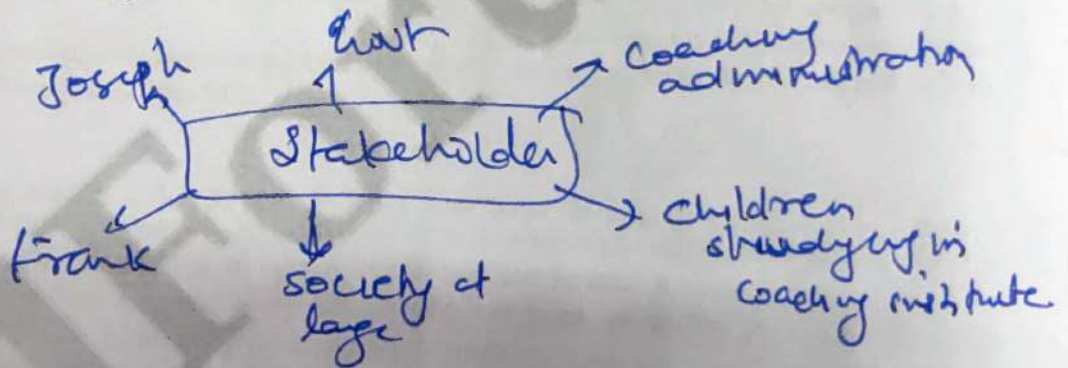 Joseph
Govt
Coaching
administration
Stakeholder
Frank
society at
large
children
studying in
coaching institute